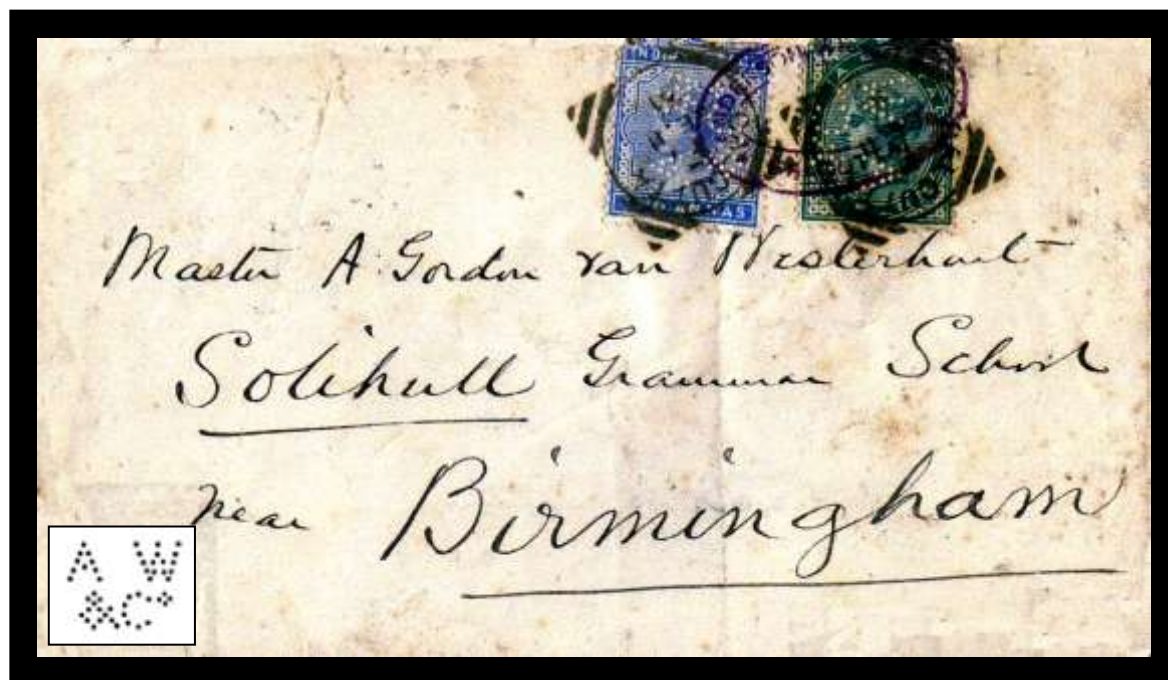 Master A. Gordon van Westerhout
Solihull Grammar School
near Birmingham
A W
& Co